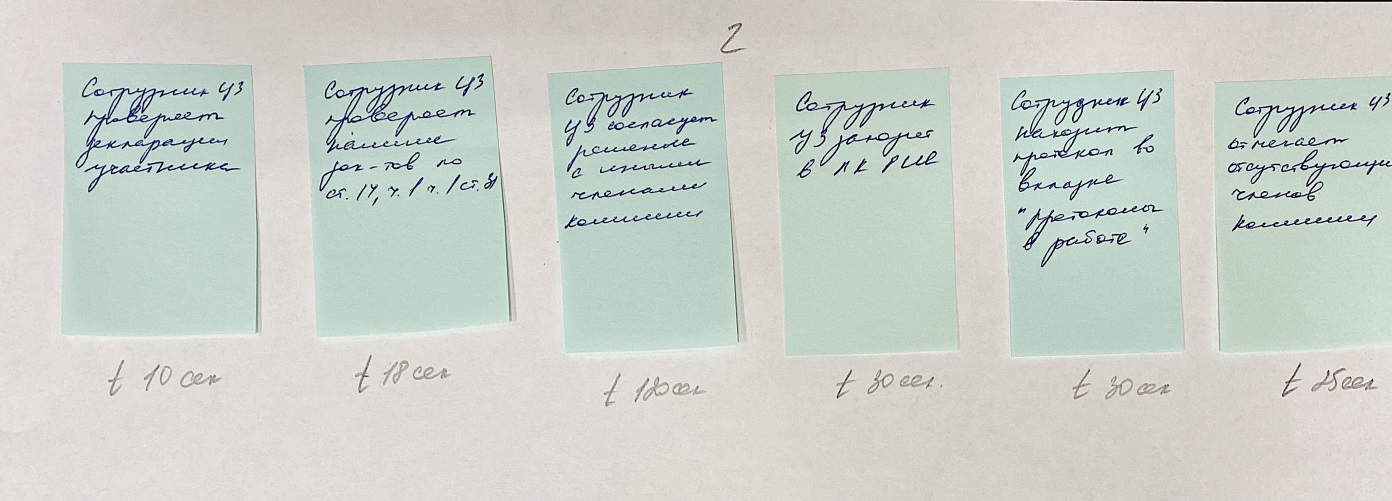 2
Сотрудник УЗ
проверяет
декларации
участника
t 10 сек
Сотрудник УЗ
проверяет
наличие
док-тов по
ст. 14, ч. 1 ч. 1 ст. 31
t 18 сек
Сотрудник
УЗ согласует
решение
с иными
членами
комиссии
t 120 сек
Сотрудник
УЗ заходит
в ЛК РИС
t 30 сек.
Сотрудник УЗ
находит
протокол во
вкладке
"Протоколы
в работе"
t 30 сек
Сотрудник УЗ
отмечает
отсутствующи
членов
комиссии
t 25 сек